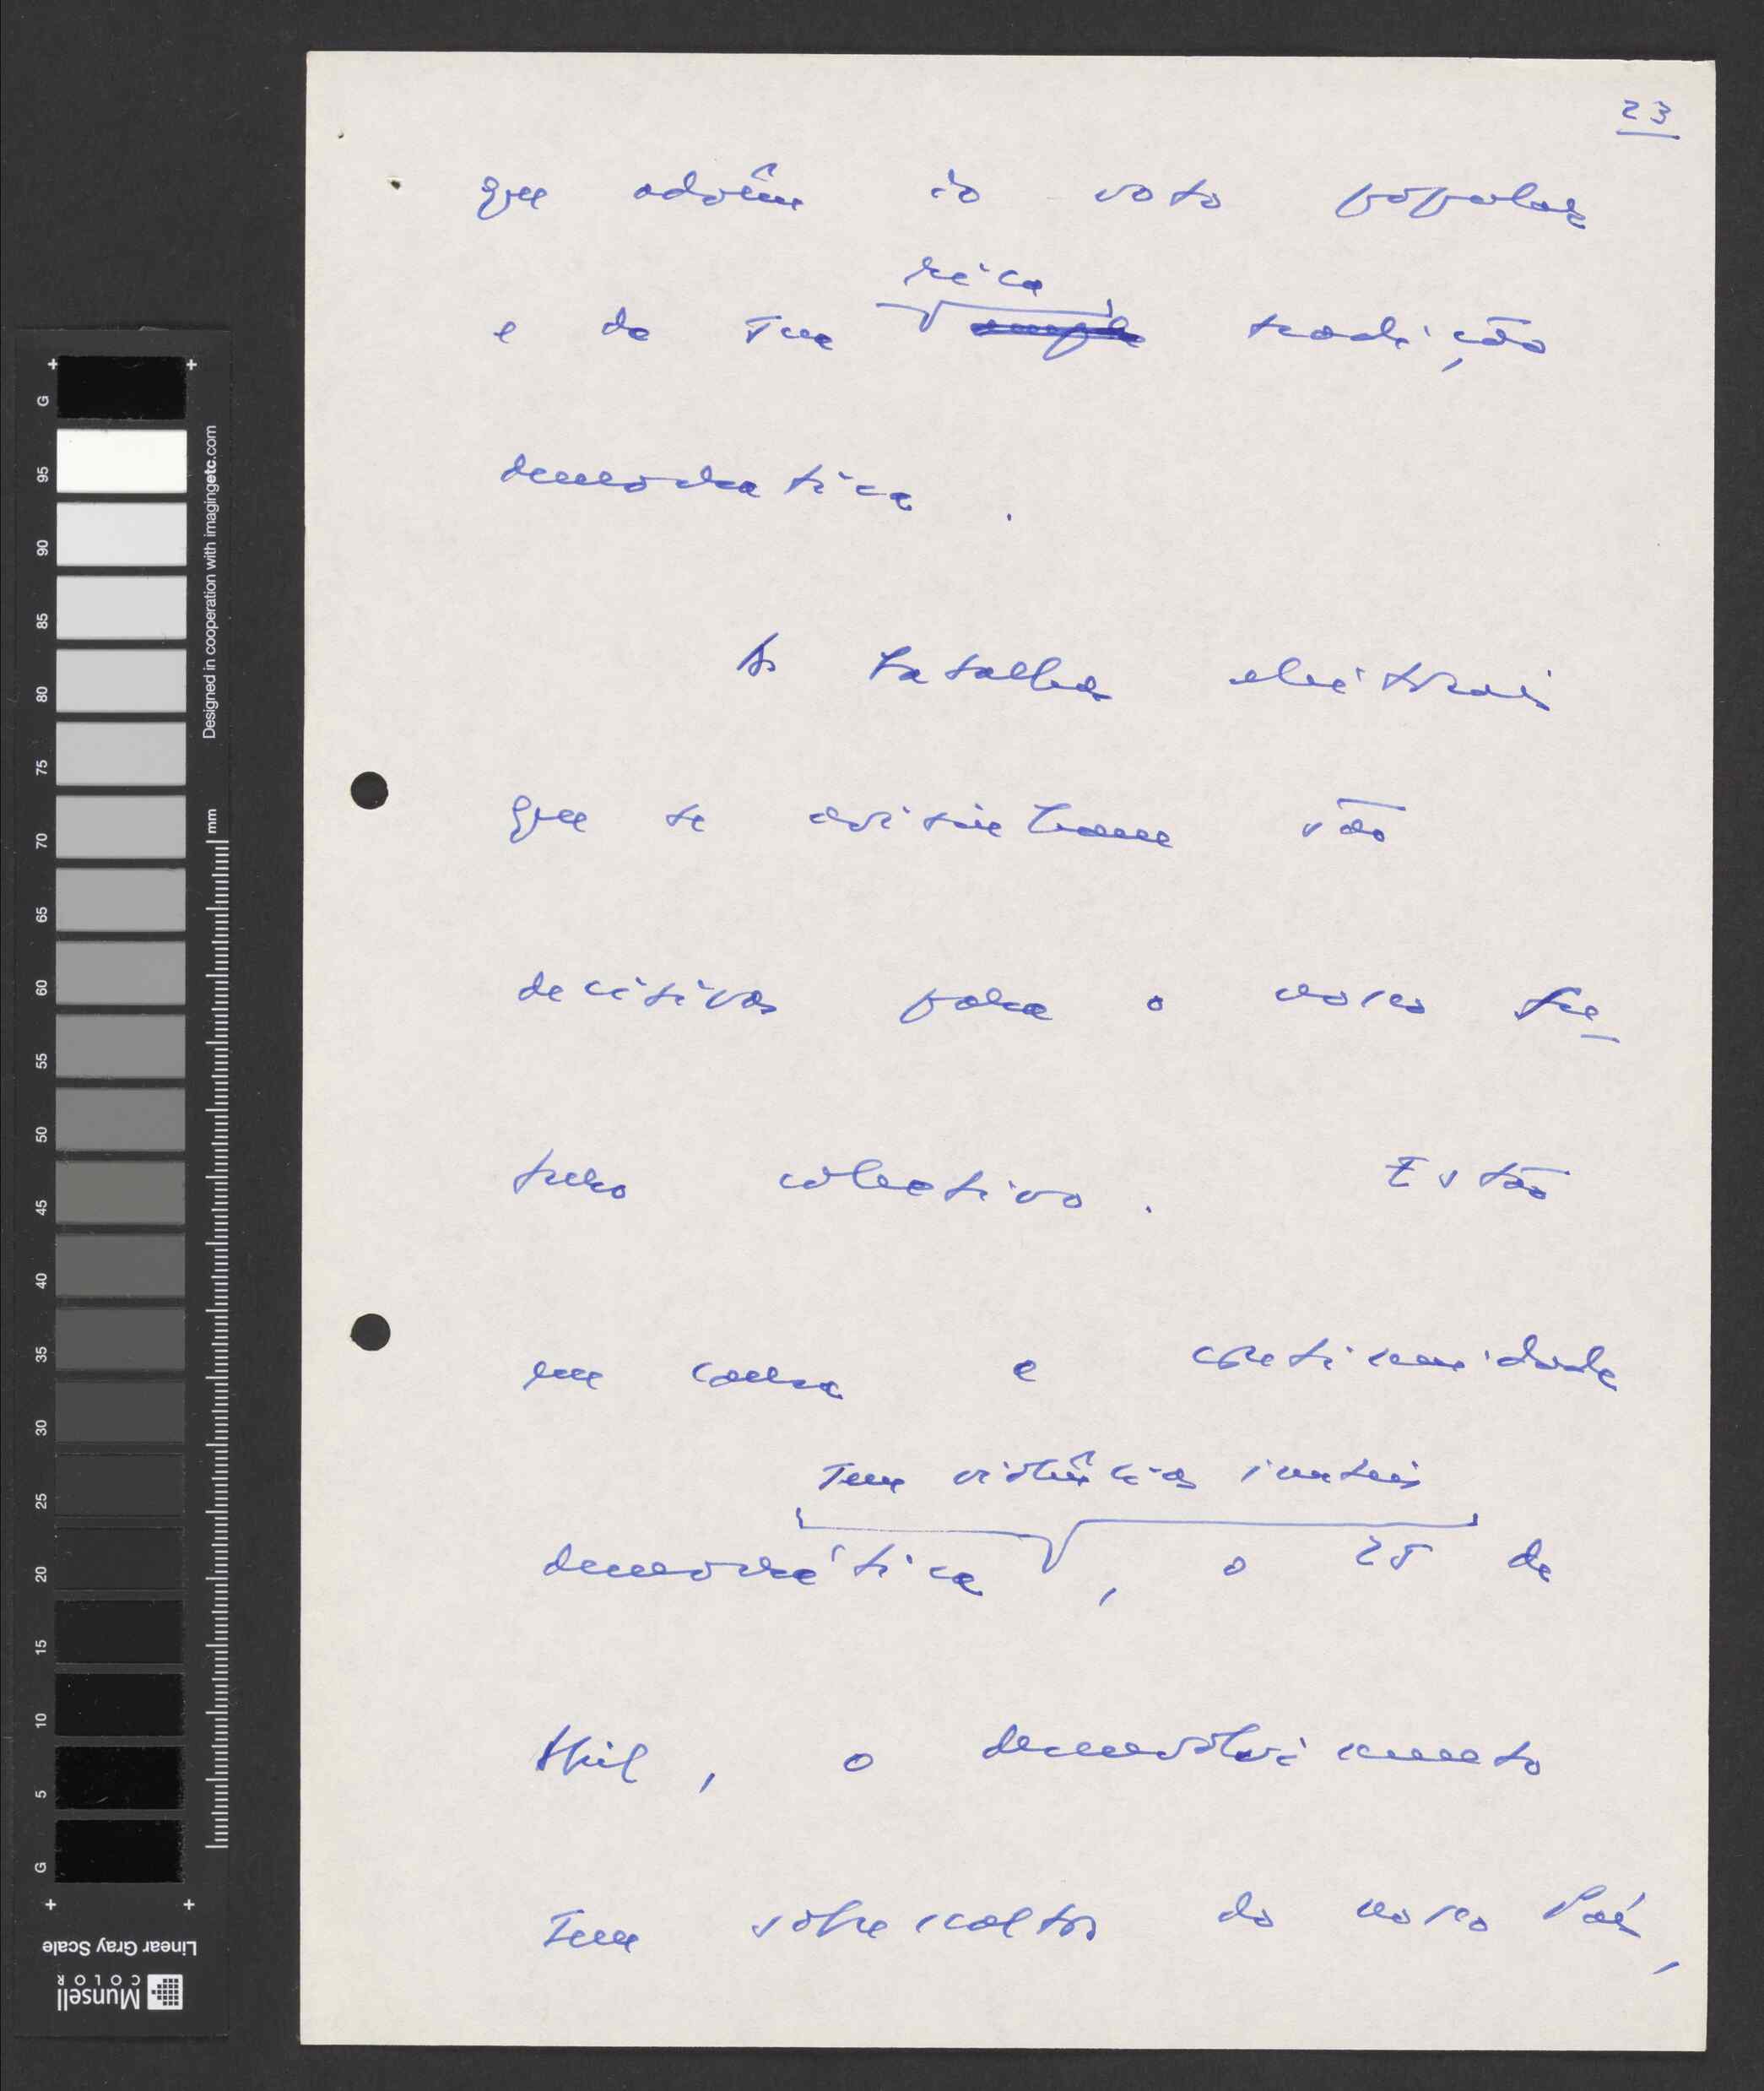 23
que advém do voto popular
rica
e da sua ampla tradição
democrática.
As batalhas eleitorais
que se avizinham são
decisivas para o nosso fu-
turo colectivo. Estão
em causa a continuidade
sem violências inúteis
democrática, o 25 de
Abril, o desenvolvimento
sem sobressaltos do nosso País,
G
95
90
85
80
75
70
65
60
55
50
45
40
35
30
25
20
15
10
5
G
mm
Designed in cooperation with imagingetc.com
Linear Gray Scale
Munsell
COLOR